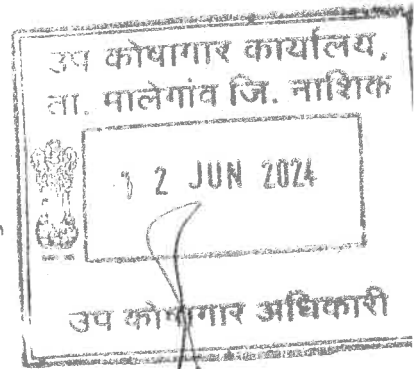 उप कोषागार कार्यालय,
ता. मालेगांव जि. नाशिक
12 JUN 2024
उप कोषागार अधिकारी